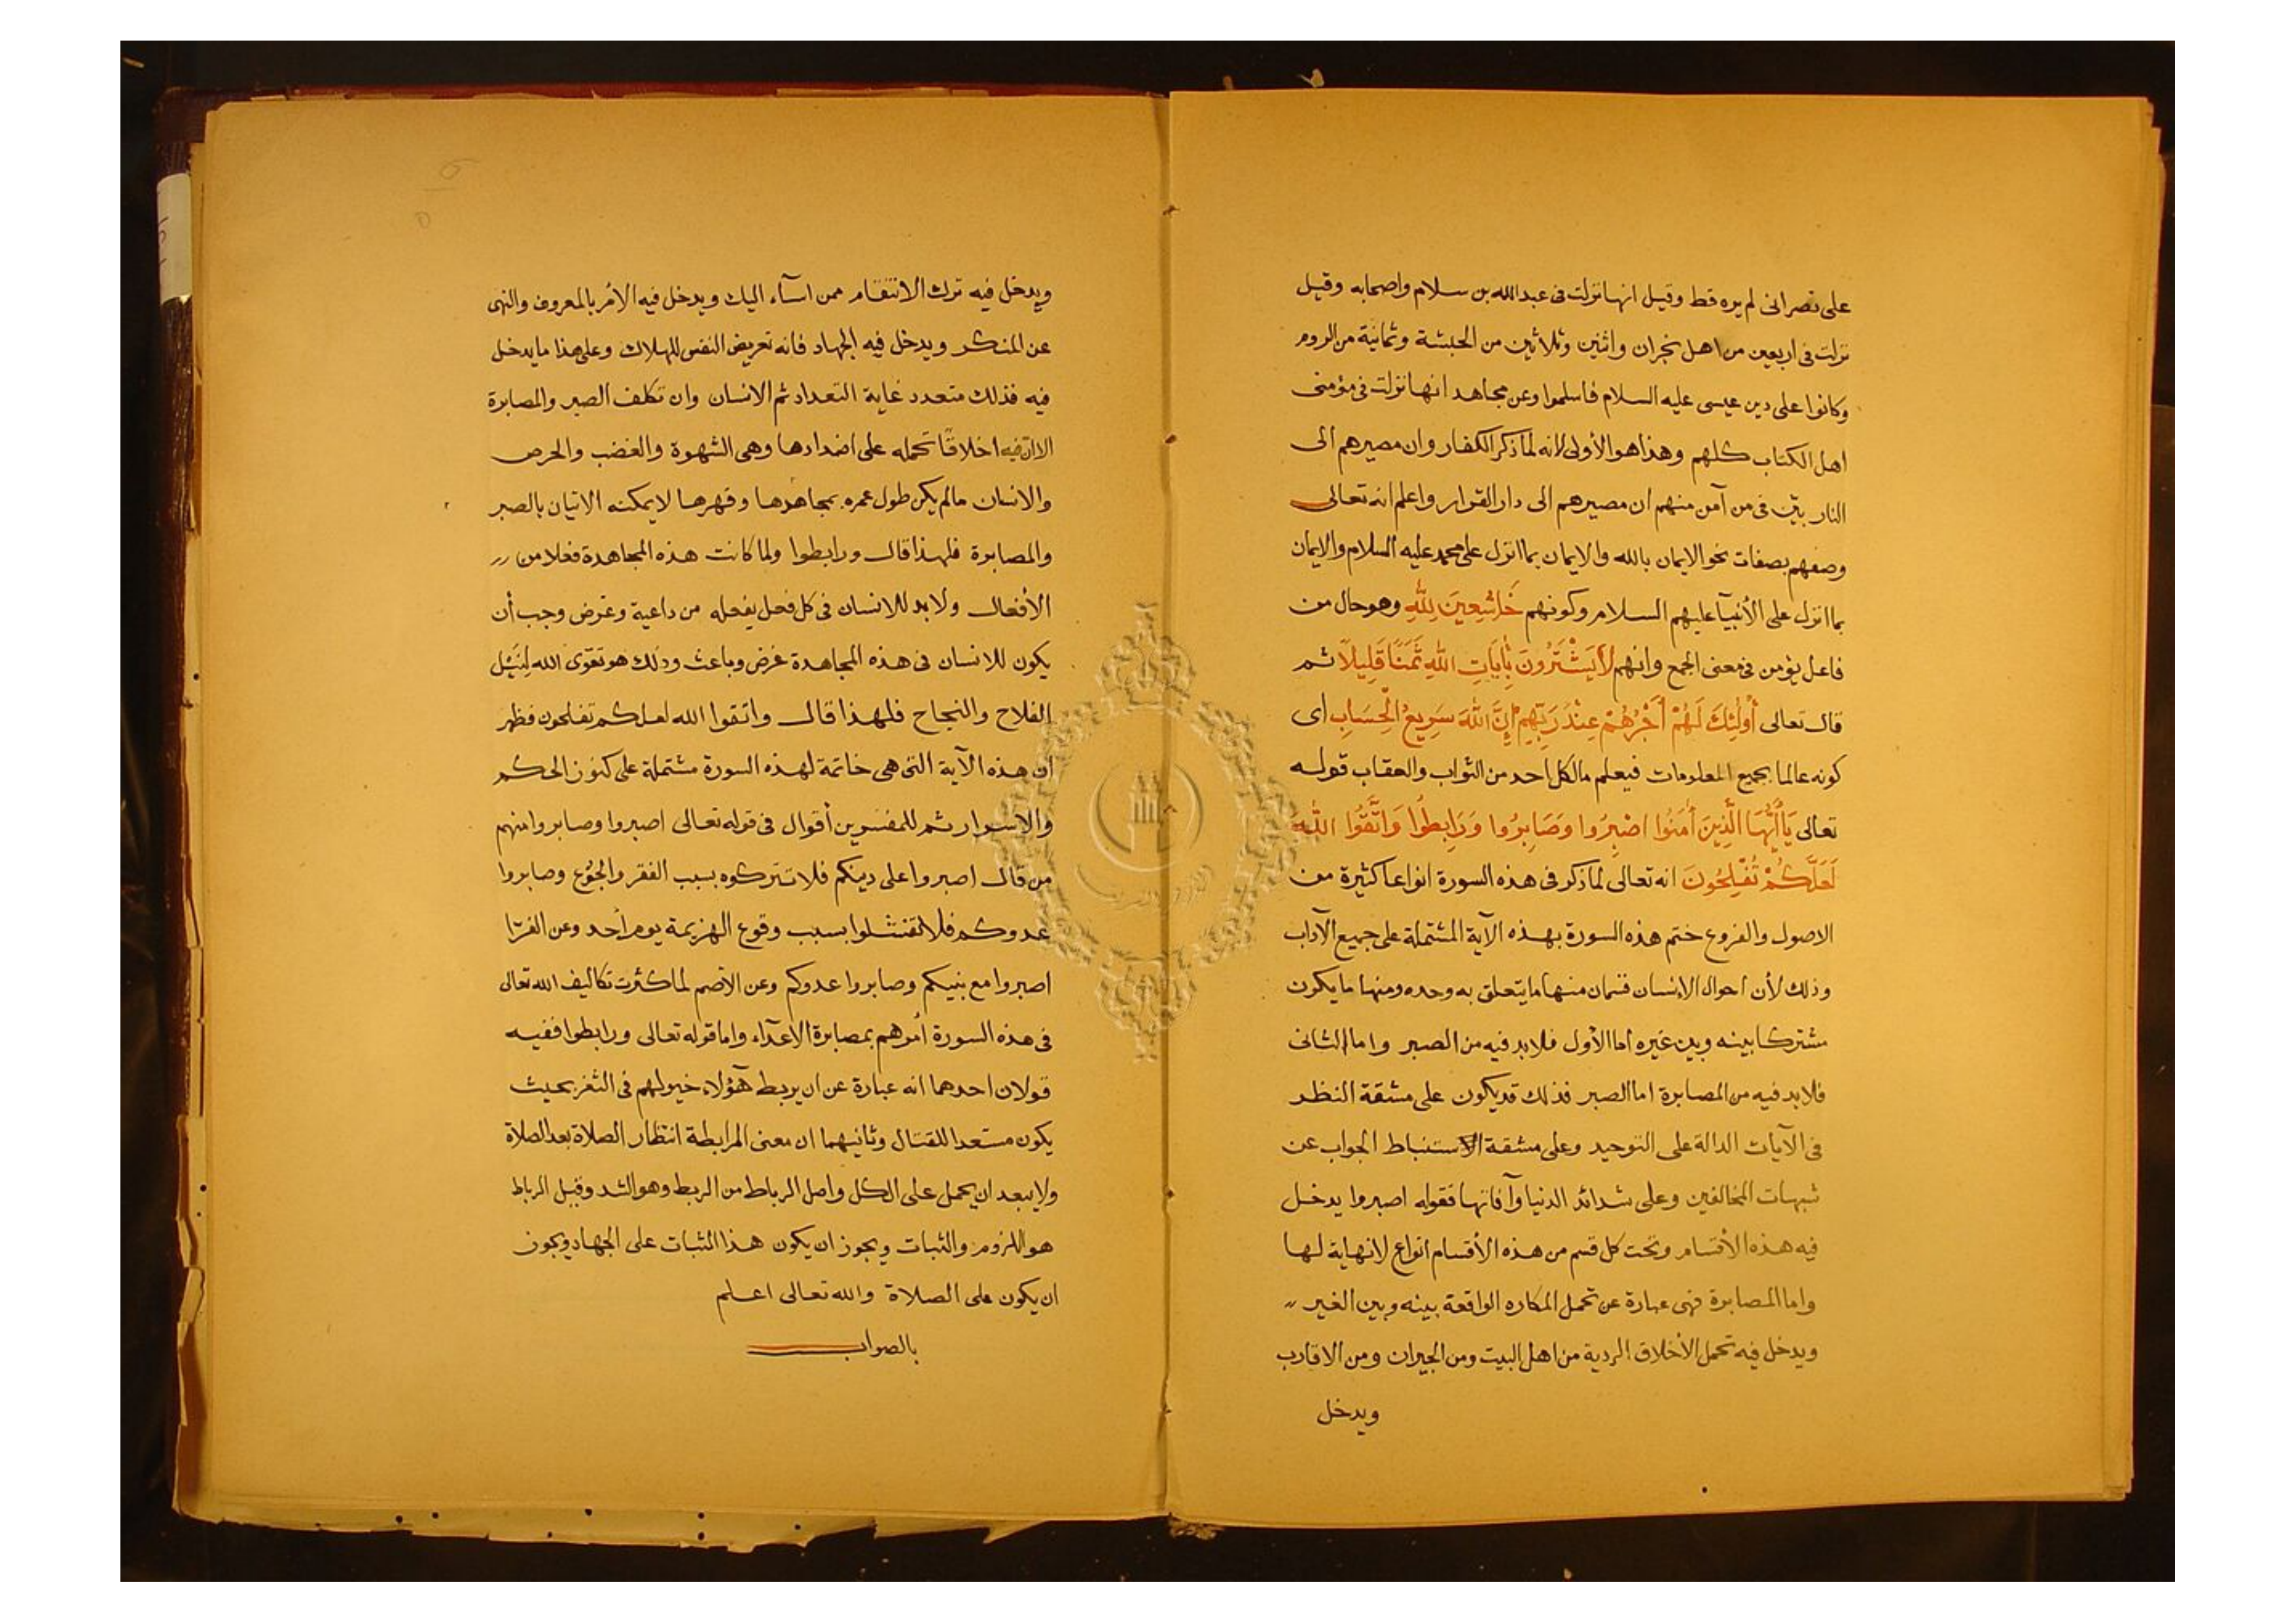 على نصرانى لم يره قط وقيل انها نزلت فى عبد الله بن سلام واصحابه وقيل
نزلت فى اربعين من اهل نجران واثنين وثلاثين من الحبشة وثمانية من الروم
وكانوا على دين عيسى عليه السلام فاسلموا وعن مجاهد انها نزلت فى مؤمنى
اهل الكتاب كلهم وهذا هو الأولى لانه لما ذكر الكفار وان مصيرهم الى
النار بيّن فى من آمن منهم ان مصيرهم الى دار القرار واعلم انه تعالى
وصفهم بصفات نحو الايمان بالله والايمان بما انزل على محمد عليه السلام والايمان
بما انزل على الأنبيآ عليهم السلام وكونهم خَاشِعِينَ لِلَّهِ وهو حال من
فاعل يؤمن فى معنى الجمع وانهم لَا يَشْتَرُونَ بِأَيَاتِ اللَّهِ ثَمَنًا قَلِيلًا ثم
قال تعالى أُولٰئِكَ لَهُمْ أَجْرُهُمْ عِنْدَ رَبِّهِمْ إِنَّ اللَّهَ سَرِيعُ الْحِسَابِ اى
كونه عالما بجميع المعلومات فيعلم ما لكل احد من الثواب والعقاب قوله
تعالى يَاأَيُّهَا الَّذِينَ أَمَنُوا اصْبِرُوا وَصَابِرُوا وَرَابِطُوا وَاتَّقُوا اللَّهَ
لَعَلَّكُمْ تُفْلِحُونَ انه تعالى لما ذكر فى هذه السورة انواعا كثيرة من
الاصول والفروع ختم هذه السورة بهذه الآية المشتملة على جميع الآداب
وذلك لأن احوال الانسان قسمان منها ما يتعلق به وحده ومنها ما يكون
مشتركا بينه وبين غيره أما الأول فلابد فيه من الصبر واما الثانى
فلابد فيه من المصابرة اما الصبر فذلك قد يكون على مشقة النظر
فى الآيات الدالة على التوحيد وعلى مشقة الاستنباط الجواب عن
شبهات المخالفين وعلى شدائد الدنيا وآفاتها فقوله اصبروا يدخل
فيه هذه الأقسام وتحت كل قسم من هذه الأقسام انواع لانهاية لها
واما المصابرة فهى عبارة عن تحمل المكاره الواقعة بينه وبين الغير
ويدخل فيه تحمل الأخلاق الردية من اهل البيت ومن الجيران ومن الاقارب
ويدخل
ويدخل فيه ترك الانتقام ممن اسآء اليك ويدخل فيه الأمر بالمعروف والنهى
عن المنكر ويدخل فيه الجهاد فانه تعريض النفس للهلاك وعلى هذا ما يدخل
فيه فذلك متعدد غاية التعداد ثم الانسان وان تكلف الصبر والمصابرة
الا ان فيه اخلاقًا تحمله على اضدادها وهى الشهوة والغضب والحرص
والانسان مالم يكن طول عمره بمجاهدها وقهرها لا يمكنه الاتيان بالصبر
والمصابرة فلهذا قال ورابطوا ولما كانت هذه المجاهدة فعلا من
الأفعال ولابد للانسان فى كل فعل يفعله من داعية وغرض وجب أن
يكون للانسان فى هذه المجاهدة غرض وباعث وذلك هو تقوى الله لِنَيْل
الفلاح والنجاح فلهذا قال واتقوا الله لعلكم تفلحون فظهر
ان هذه الآية التى هى خاتمة لهذه السورة مشتملة على كنوز الحكم
والاسرار ثم للمفسرين أقوال فى قوله تعالى اصبروا وصابروا منهم
من قال اصبروا على دينكم فلا تتركوه بسبب الفقر والجُوع وصابروا
عدوكم فلا تفشلوا بسبب وقوع الهزيمة يوم أحد وعن الفرّا
اصبروا مع نبيكم وصابروا عدوكم وعن الأصم لما كثرت تكاليف الله تعالى
فى هذه السورة أمرهم بمصابرة الاعدآء واما قوله تعالى ورابطوا ففيه
قولان احدهما انه عبارة عن ان يربط هؤلاء خيولهم فى الثغر بحيث
يكون مستعدا للقتال وثانيهما ان معنى المرابطة انتظار الصلاة بعد الصلاة
ولا يبعد ان يحمل على الكل واصل الرباط من الربط وهو الشد وقيل الرباط
هو اللزوم والثبات ويجوز ان يكون هذا الثبات على الجهاد ويجوز
ان يكون على الصلاة والله تعالى اعلم
بالصواب